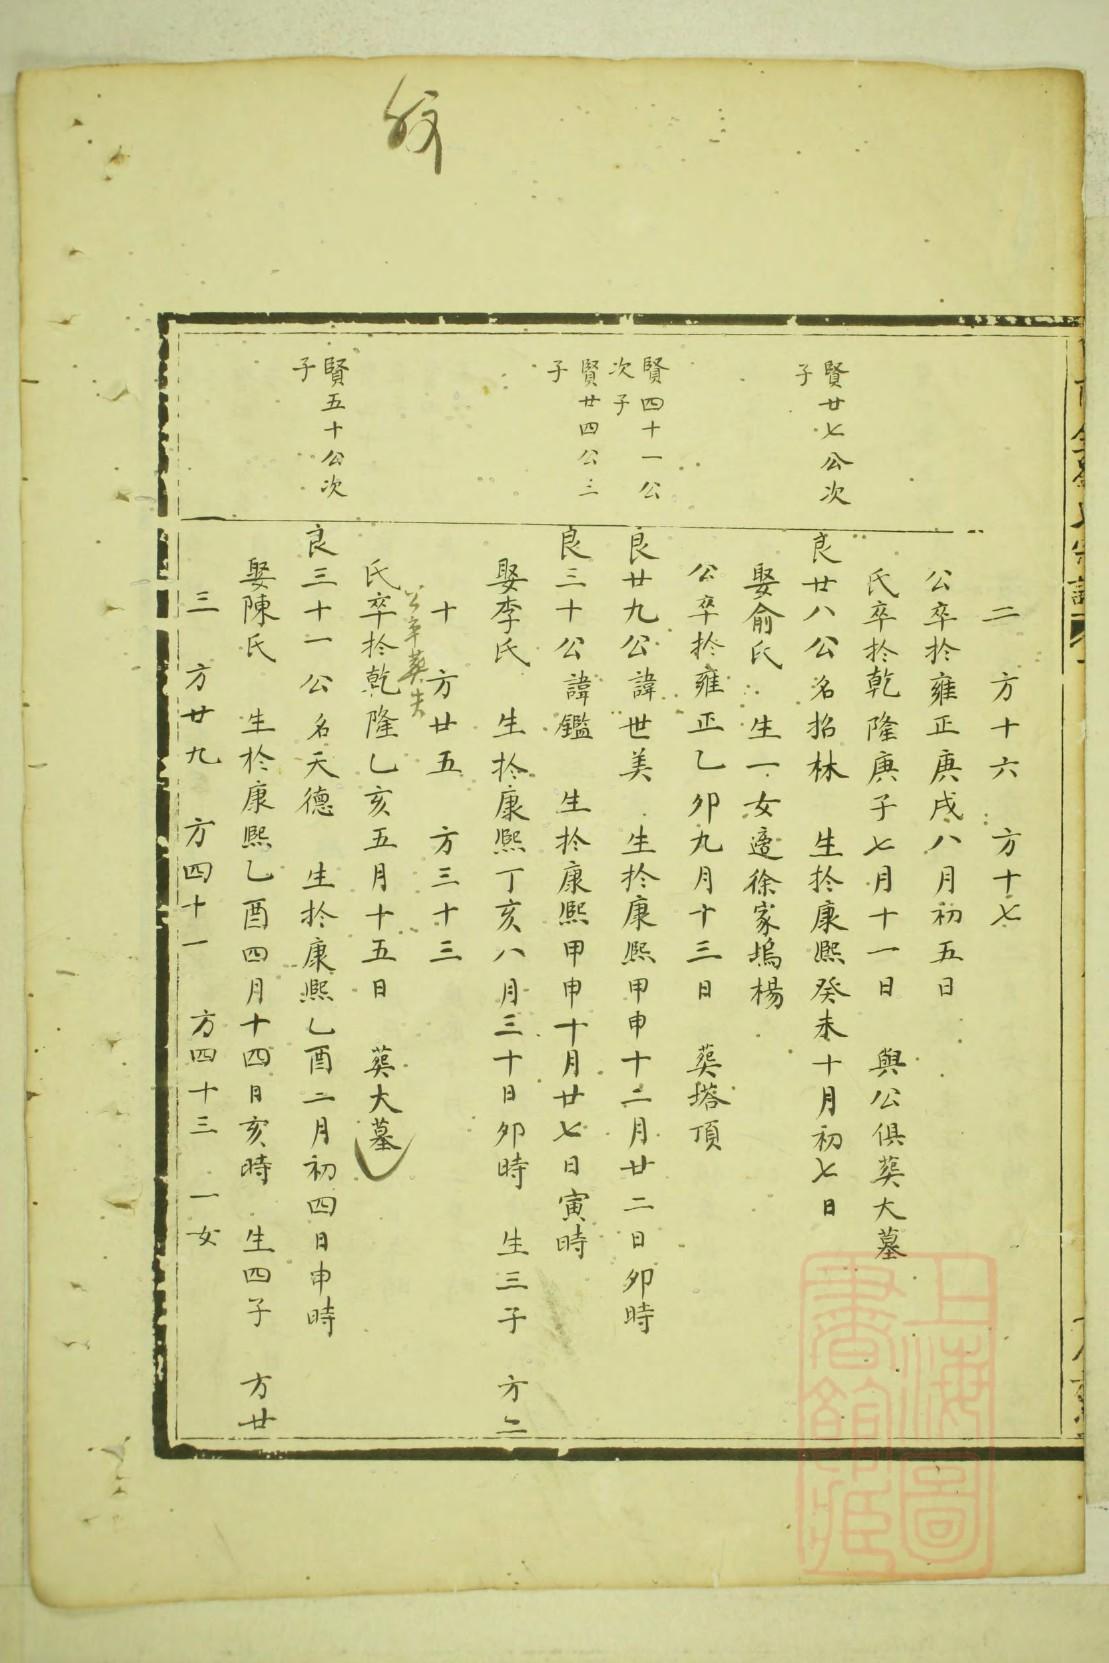 賢廿七公次
子
賢四十一公
次子
賢廿四公三
子
賢五十公次
子
二 方十六 方十七
公卒於雍正庚戌八月初五日
氏卒於乾隆庚子七月十一日 與公俱葬大墓
良廿八公名招林 生於康熙癸未十月初七日
娶俞氏 生一女適徐家塢楊
公卒於雍正乙卯九月十三日 葬塔頂
良廿九公諱世美 生於康熙甲申十二月廿二日卯時
良三十公諱鑑 生於康熙甲申十月廿七日寅時
娶李氏 生於康熙丁亥八月三十日卯時 生三子 方二
十 方廿五 方三十三
公卒葬失
氏卒於乾隆乙亥五月十五日 葬大墓
良三十一公名天德 生於康熙乙酉二月初四日申時
娶陳氏 生於康熙乙酉四月十四日亥時 生四子 方廿
三 方廿九 方四十一 方四十三 一女
上海圖
書館藏